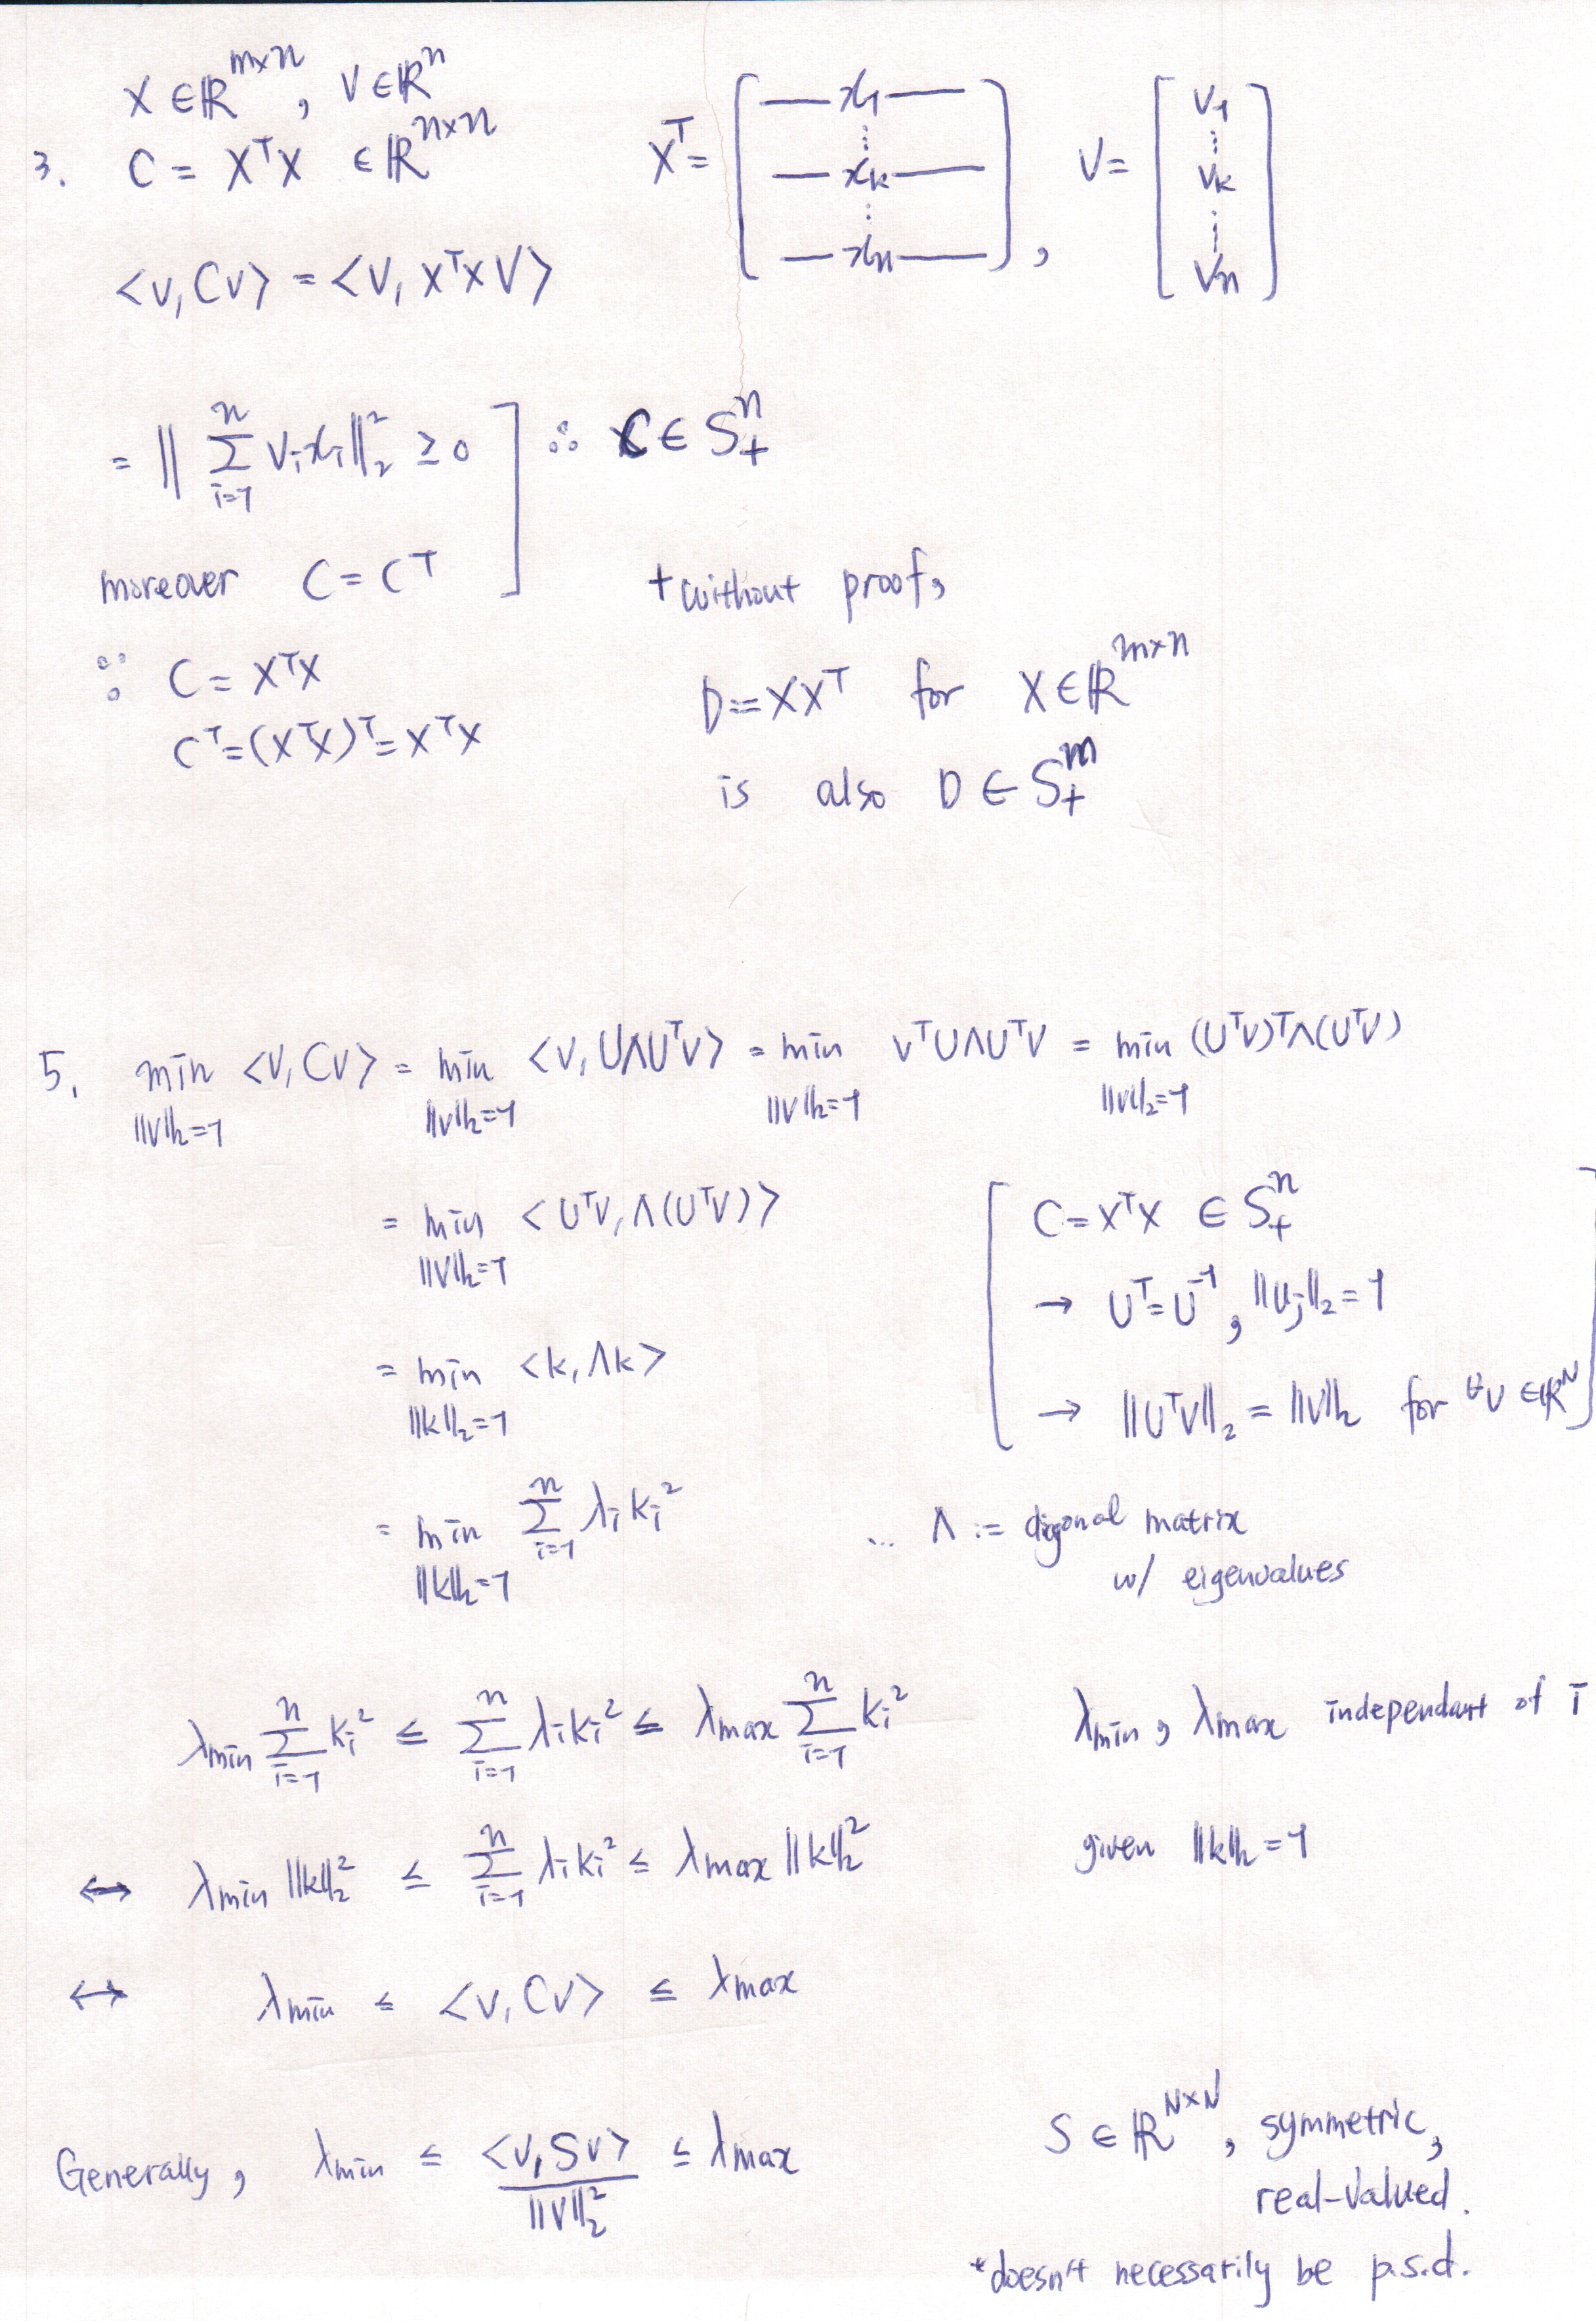 X ∈ ℝ^{m×n}, V ∈ ℝ^n
3. C = X^T X ∈ ℝ^{n×n}
X^T = [ —x_1— ⋮ —x_k— ⋮ —x_n— ], V = [ v_1 ⋮ v_k ⋮ v_n ]
<v, Cv> = <v, X^T X V>
= || Σ_{i=1}^{n} v_i x_i ||_2^2 ≥ 0 ] ∴ C ∈ S_+^n
moreover C = C^T
∵ C = X^T X
C^T = (X^T X)^T = X^T X
+ without proof,
D = XX^T for X ∈ ℝ^{m×n}
is also D ∈ S_+^m
5. min_{||v||_2=1} <v, Cv> = min_{||v||_2=1} <v, UΛU^T v> = min_{||v||_2=1} v^T UΛU^T v = min_{||v||_2=1} (U^T v)^T Λ(U^T v)
= min_{||v||_2=1} <U^T v, Λ(U^T v)>
= min_{||k||_2=1} <k, Λk>
= min_{||k||_2=1} Σ_{i=1}^{n} λ_i k_i^2
[ C = X^T X ∈ S_+^n
→ U^T = U^{-1}, ||u_j||_2 = 1
→ ||U^T v||_2 = ||v||_2 for ∀v ∈ ℝ^N ]
... Λ := diagonal matrix
w/ eigenvalues
λ_min Σ_{i=1}^{n} k_i^2 ≤ Σ_{i=1}^{n} λ_i k_i^2 ≤ λ_max Σ_{i=1}^{n} k_i^2 λ_min, λ_max independant of i
↔ λ_min ||k||_2^2 ≤ Σ_{i=1}^{n} λ_i k_i^2 ≤ λ_max ||k||_2^2 given ||k||_2 = 1
↔ λ_min ≤ <v, Cv> ≤ λ_max
Generally, λ_min ≤ <v, Sv> / ||v||_2^2 ≤ λ_max
S ∈ ℝ^{N×N}, symmetric,
real-valued.
*doesn't necessarily be p.s.d.